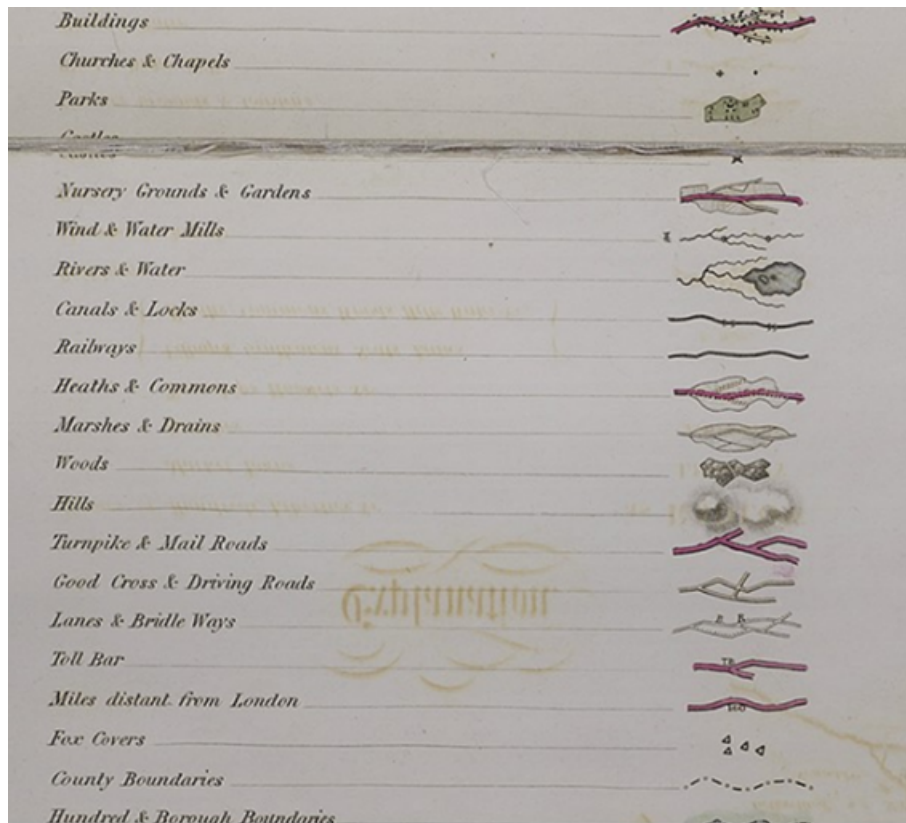 Buildings
Churches & Chapels
Parks
Castles
Nursery Grounds & Gardens
Wind & Water Mills
Rivers & Water
Canals & Locks
Railways
Heaths & Commons
Marshes & Drains
Woods
Hills
Turnpike & Mail Roads
Good Cross & Driving Roads
Explanation
Lanes & Bridle Ways
Toll Bar
TB
Miles distant from London
160
Fox Covers
County Boundaries
Hundred & Borough Boundaries